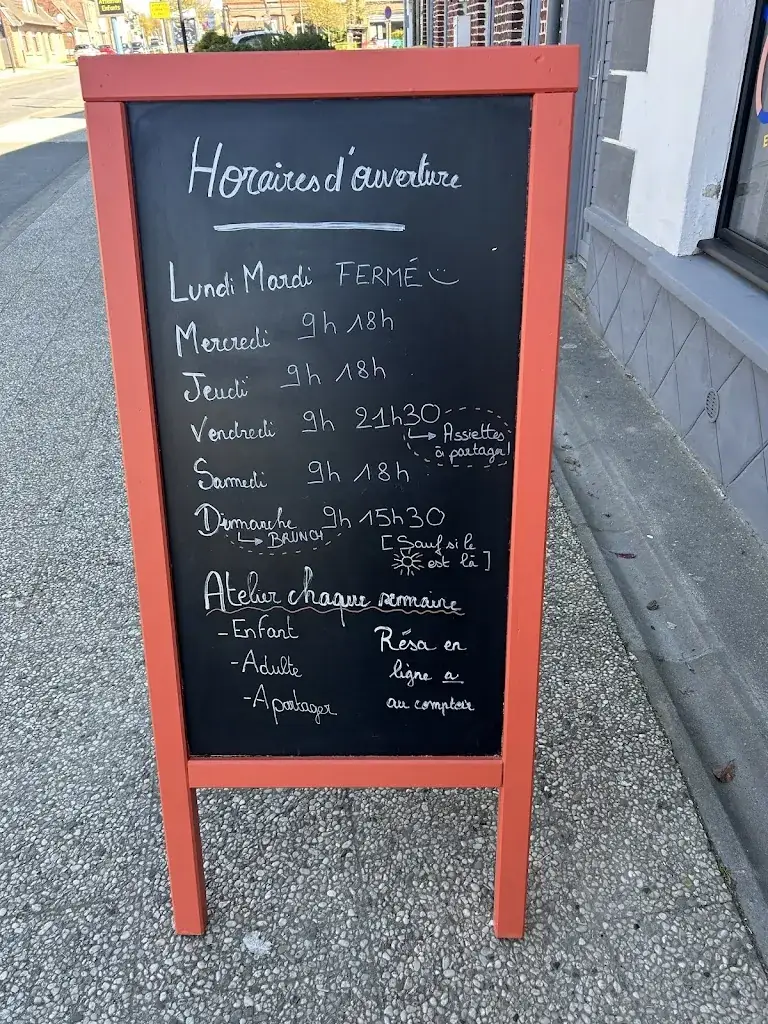 Attention
Enfants
Horaires d'ouverture
Lundi Mardi FERMÉ
Mercredi 9h 18h
Jeudi 9h 18h
Vendredi 9h 21h30
Assiettes
à partager!
Samedi 9h 18h
Dimanche 9h 15h30
BRUNCH
[Sauf si le
est là]
Atelier chaque semaine
- Enfant
- Adulte
- A partager
Résa en
ligne a
au comptoir